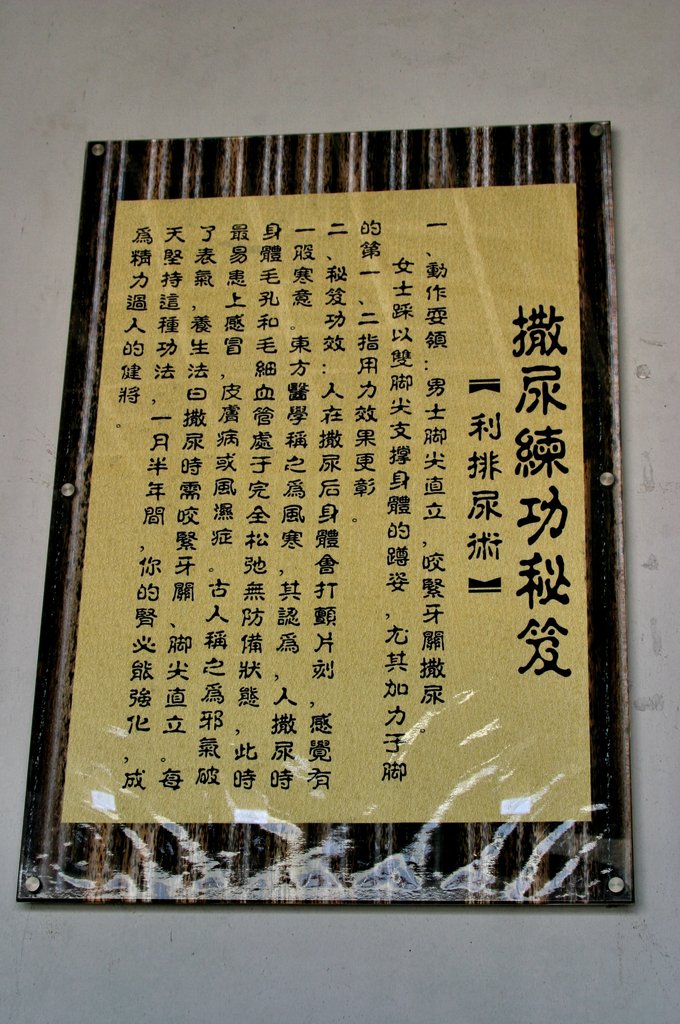 撒尿練功秘笈
【利排尿術】
一、動作要領：男士脚尖直立，咬緊牙關撒尿。
女士踩以雙脚尖支撐身體的蹲姿，尤其加力于脚
的第一、二指用力效果更彰。
二、秘笈功效：人在撒尿后身體會打顫片刻，感覺有
一股寒意。東方醫學稱之爲風寒，其認爲，人撒尿時
身體毛孔和毛細血管處于完全松弛無防備狀態，此時
最易患上感冒，皮膚病或風濕症。古人稱之爲邪氣破
了表氣，養生法曰撒尿時需咬緊牙關、脚尖直立。每
天堅持這種功法，一月半年間，你的腎必能強化，成
爲精力過人的健將。